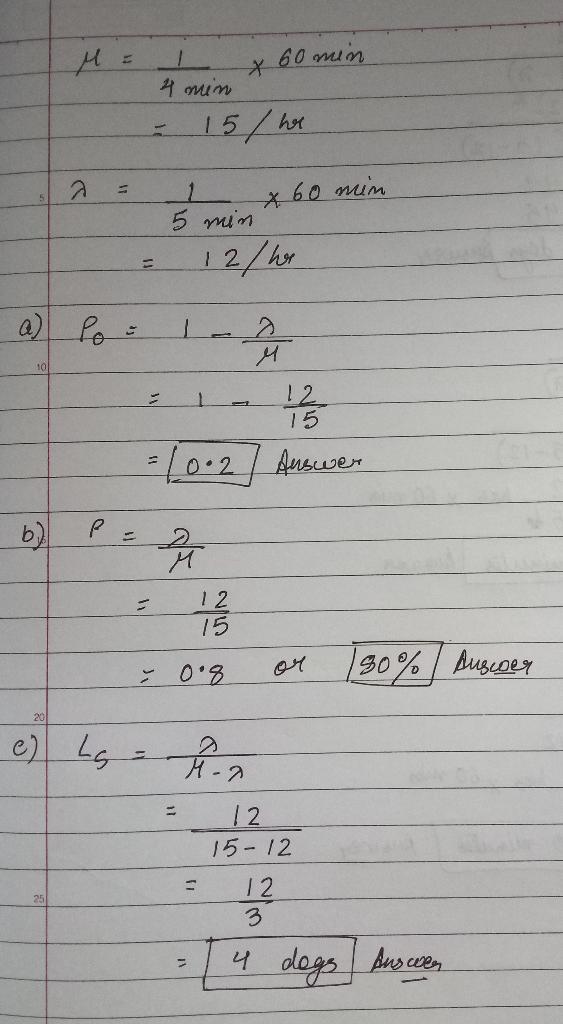 μ = 1/4 min × 60 min
= 15/hr
5
λ = 1/5 min × 60 min
= 12/hr
a) P₀ = 1 - λ/μ
10
= 1 - 12/15
= 0.2 Answer
b) P = λ/μ
= 12/15
= 0.8 or 80% Answer
20
c) Ls = λ/μ-λ
= 12/15-12
25
= 12/3
= 4 dogs Answer